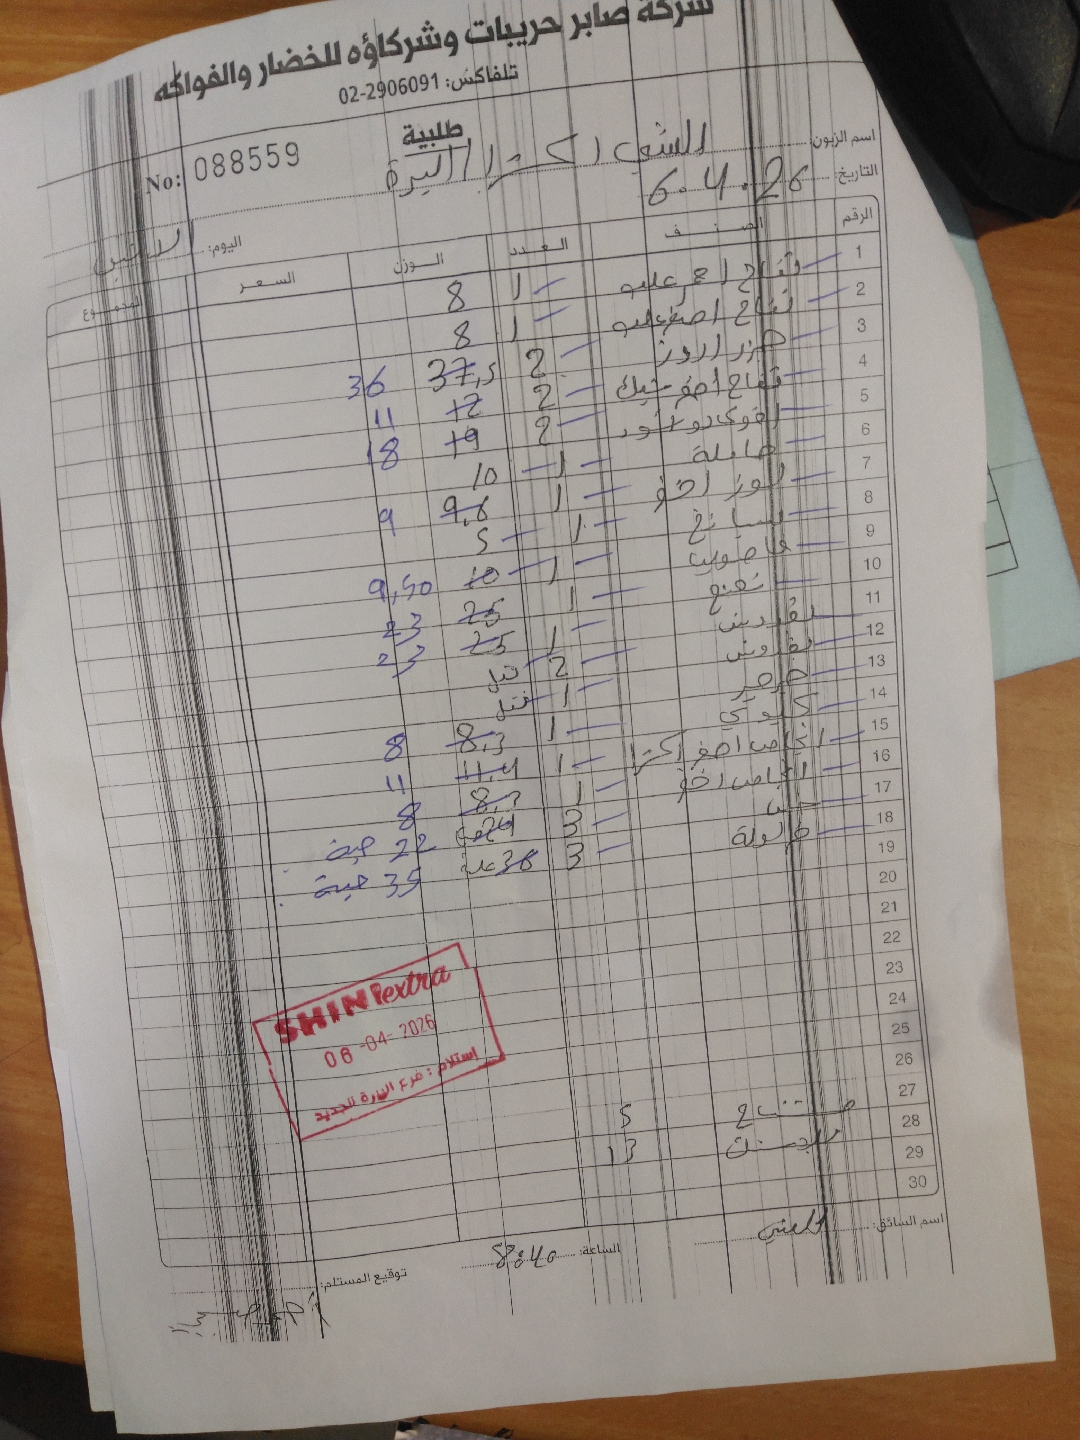 شركة صابر حريبات وشركاؤه للخضار والفواكه
تلفاكس: 02-2906091
طلبية
No: 088559
اسم الزبون: الشني اكسترا / البيرة
التاريخ: 6.4.26
اليوم: الاثنين
الرقم الصنف العدد الوزن السعر المجموع
1 تفاح احمر عليه 1 8
2 تفاح اصفر عليه 1 8
3 جزر اروز 2 37,5 36
4 تفاح اصفر 2 12 11
5 افوكادو 2 19 18
6 1 10
7 لوز اخضر 1 9,6 9
8 سبانخ 1 5
9 فاصوليا 1 10 9,50
10 نعنع 1 25 23
11 بقدونس 1 25 23
12 بقدونس 2
13 جرجير 1
14 كيوي 1 8,3 8
15 انجاص اصفر اكسترا 1 11,4 11
16 انجاص اخضر 1 8,3 8
17 خس 3 24 22 حبة
18 فراولة 3 38 علبة 35 حبة
19
20
21
22
23
24
25
26
27
28 5
29 13
30
SHINI extra
08-04-2026
إستلام: فرع البيرة الجديد
اسم السائق:
الساعة: 8:40
توقيع المستلم: